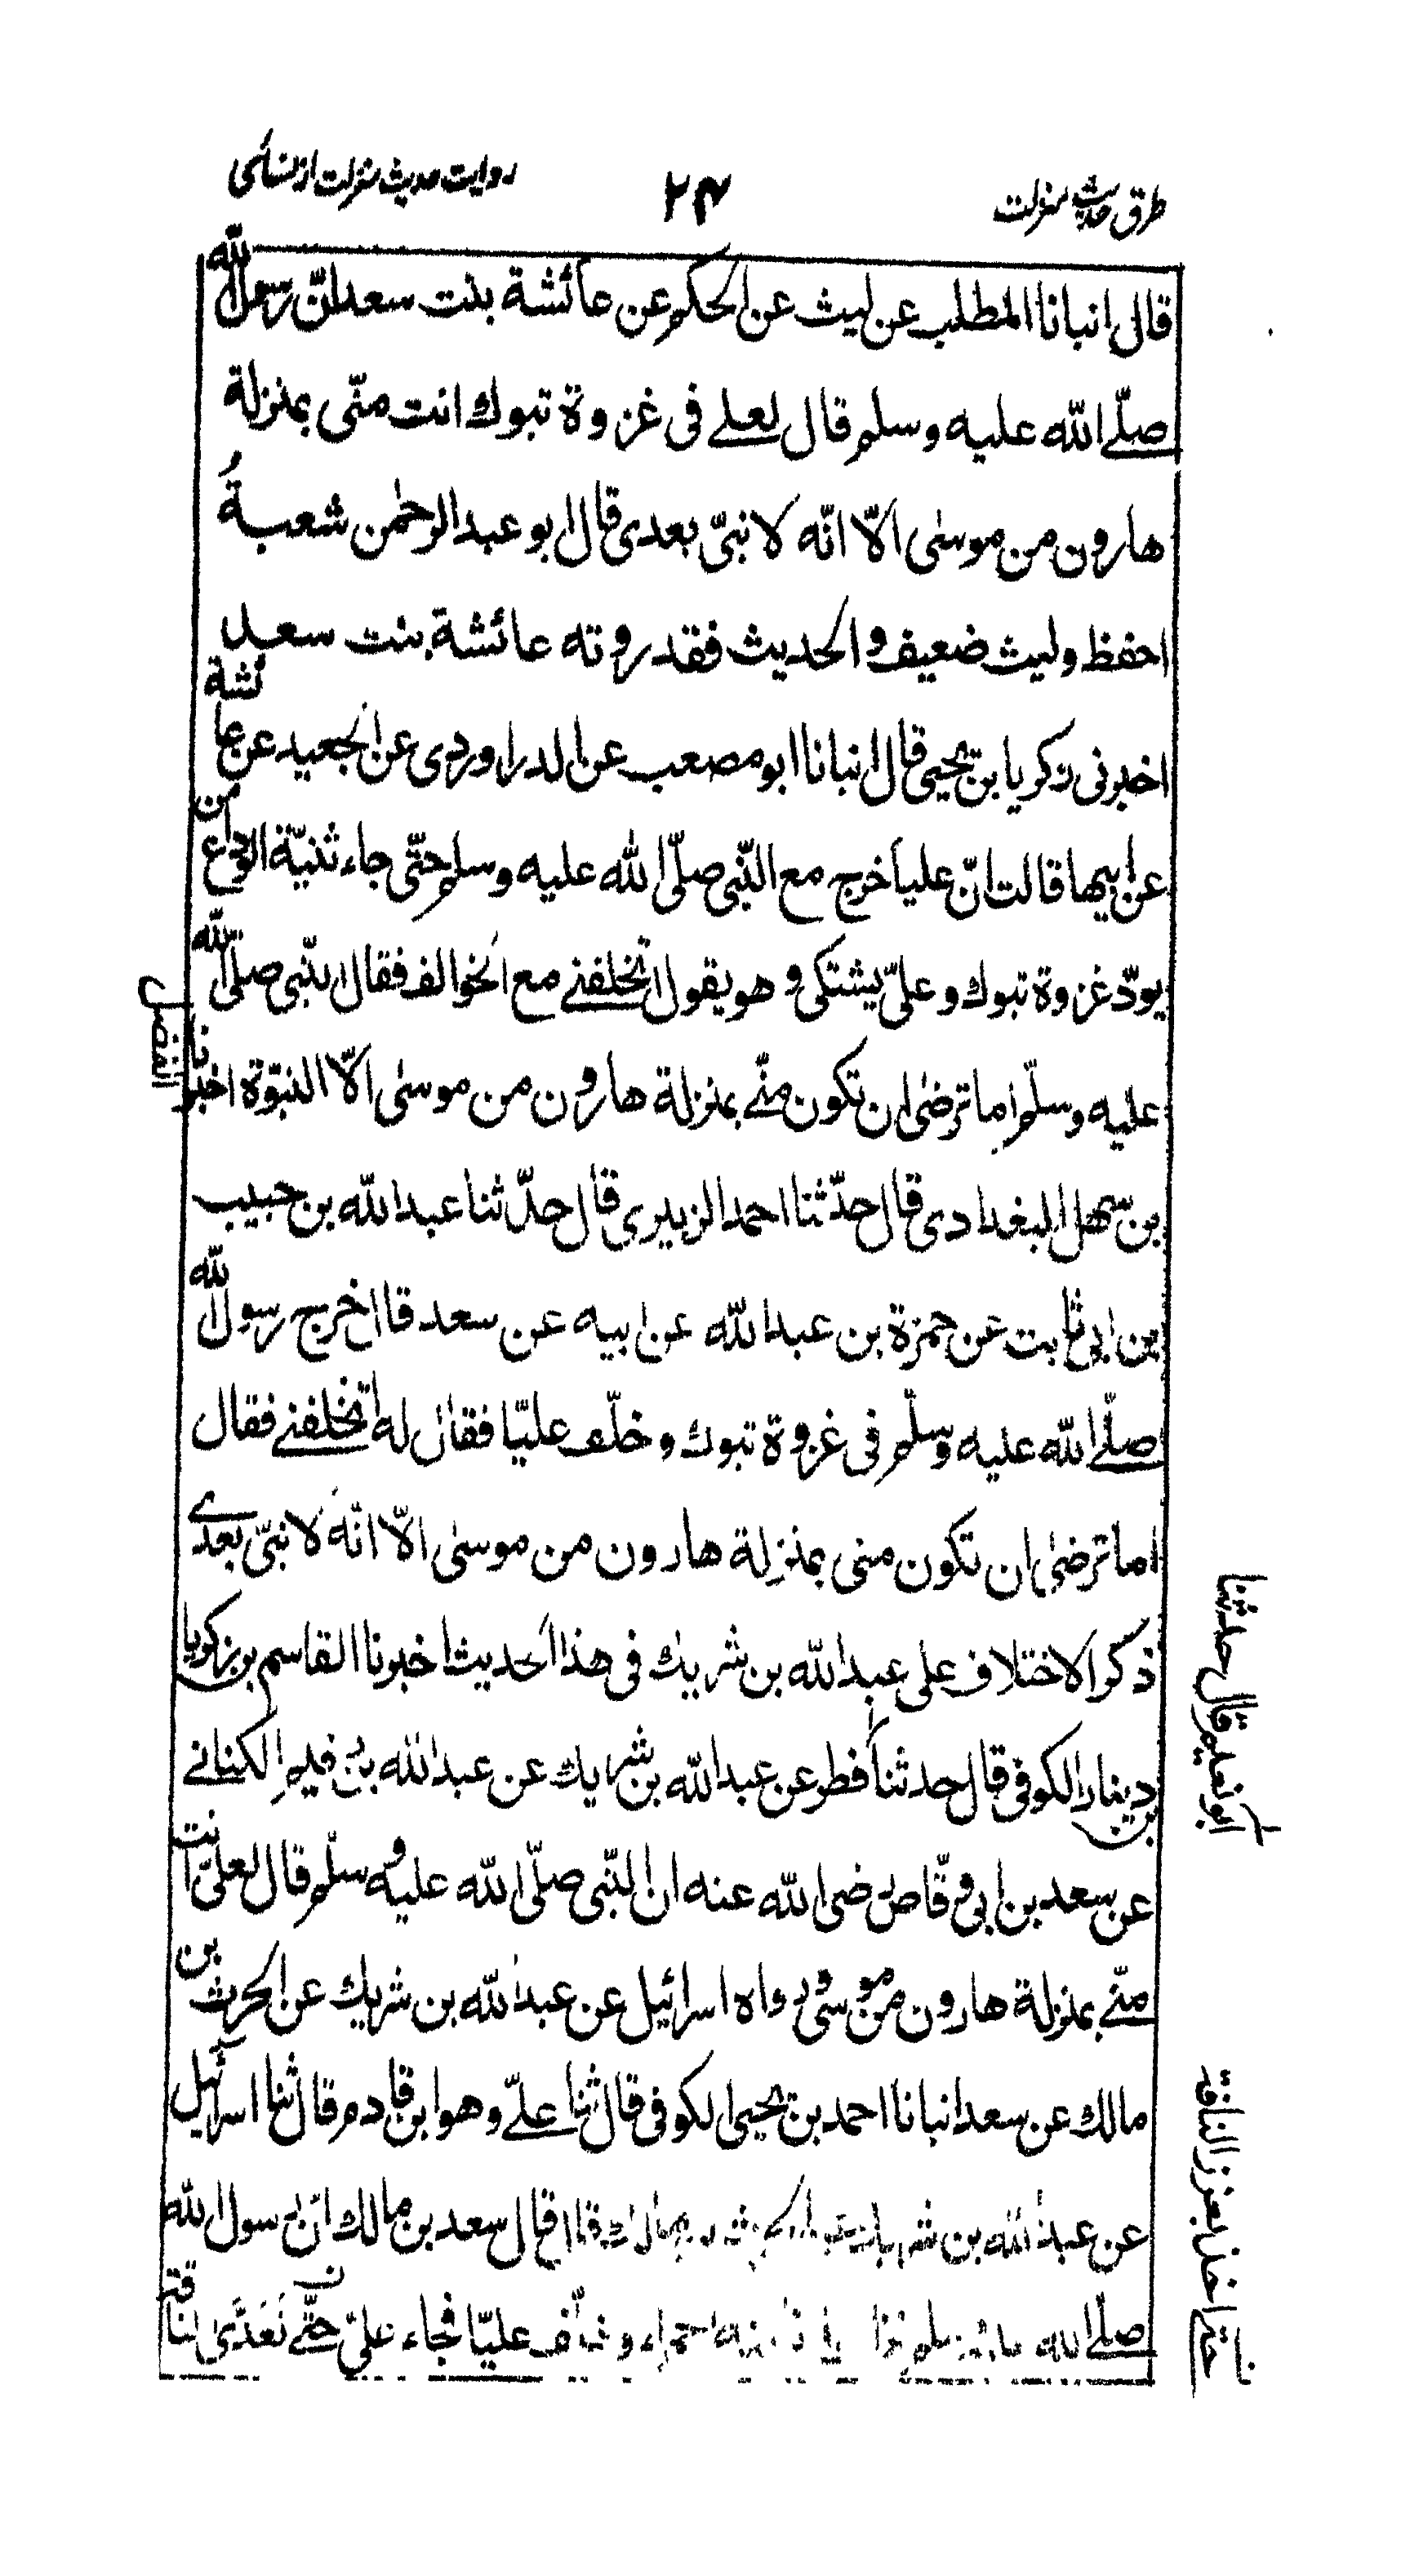 طرق حدیث منزلت
۲۴
روایت حدیث منزلت از نسائی
قال انبانا المطلب عن لیث عن الحکم عن عائشة بنت سعد انّ رسول الله
صلّے الله علیه وسلم قال لعلے فی غزوة تبوك انت منّی بمنزلة
هارون من موسٰی الّا انّه لا نبیّ بعدی قال ابو عبد الرحمٰن شعبةُ
احفظ ولیث ضعیف والحدیث فقد روته عائشة بنت سعد
اخبرنی زکریا بن یحیی قال انبانا ابو مصعب عن الدراوردی عن الجعید عن عائشة
عن ابیها قالت انّ علیا خرج مع النّبی صلّی الله علیه وسلم حتّی جاء ثنیّة الوداع من
یودّ غزوة تبوك وعلیّ یشتکی وهو یقول اتخلفنے مع الخوالف فقال النّبی صلّی الله
علیه وسلّم اما ترضٰی ان تکون منّے بمنزلة هارون من موسٰی الّا النبوّة اخبرنا
الفضل
بن سهل البغدادی قال حدّثنا احمد الزبیری قال حدّثنا عبد الله بن حبیب
بن ابی ثابت عن حمزة بن عبد الله عن ابیه عن سعد قال خرج رسول الله
صلّے الله علیه وسلّم فی غزوة تبوك وخلّف علیّا فقال له اتخلفنے فقال
اما ترضٰی ان تکون منی بمنزلة هارون من موسٰی الّا انّه لا نبیّ بعدے
ذکر الاختلاف علی عبد الله بن شریك فی هذا الحدیث اخبرنا القاسم بن زکریا
بن دینار الکوفی قال حدثنا فطر عن عبد الله بن شریك عن عبد الله بن فیم الکنانے
ابو نعیم قال حدثنا
عن سعد بن ابی وقّاص رضی الله عنه ان النّبی صلّی الله علیه وسلّم قال لعلیّ انت
منّے بمنزلة هارون من موسٰی ورواه اسرائیل عن عبد الله بن شریك عن الحرث بن
مالك عن سعد انبانا احمد بن یحیی الکوفی قال ثنا علیّ وهو ابن قادم قال ثنا اسرائیل
عن عبد الله بن شریك عن الحرث بن مالك قال قال سعد بن مالك انّ رسول الله
صلّے الله علیه وسلم غزا علی ناقته الحمراء وخلّف علیّا فجاء علیّ حتّٰے تَعَدَّی الناقة
حتے اخذ بغرز الناقة